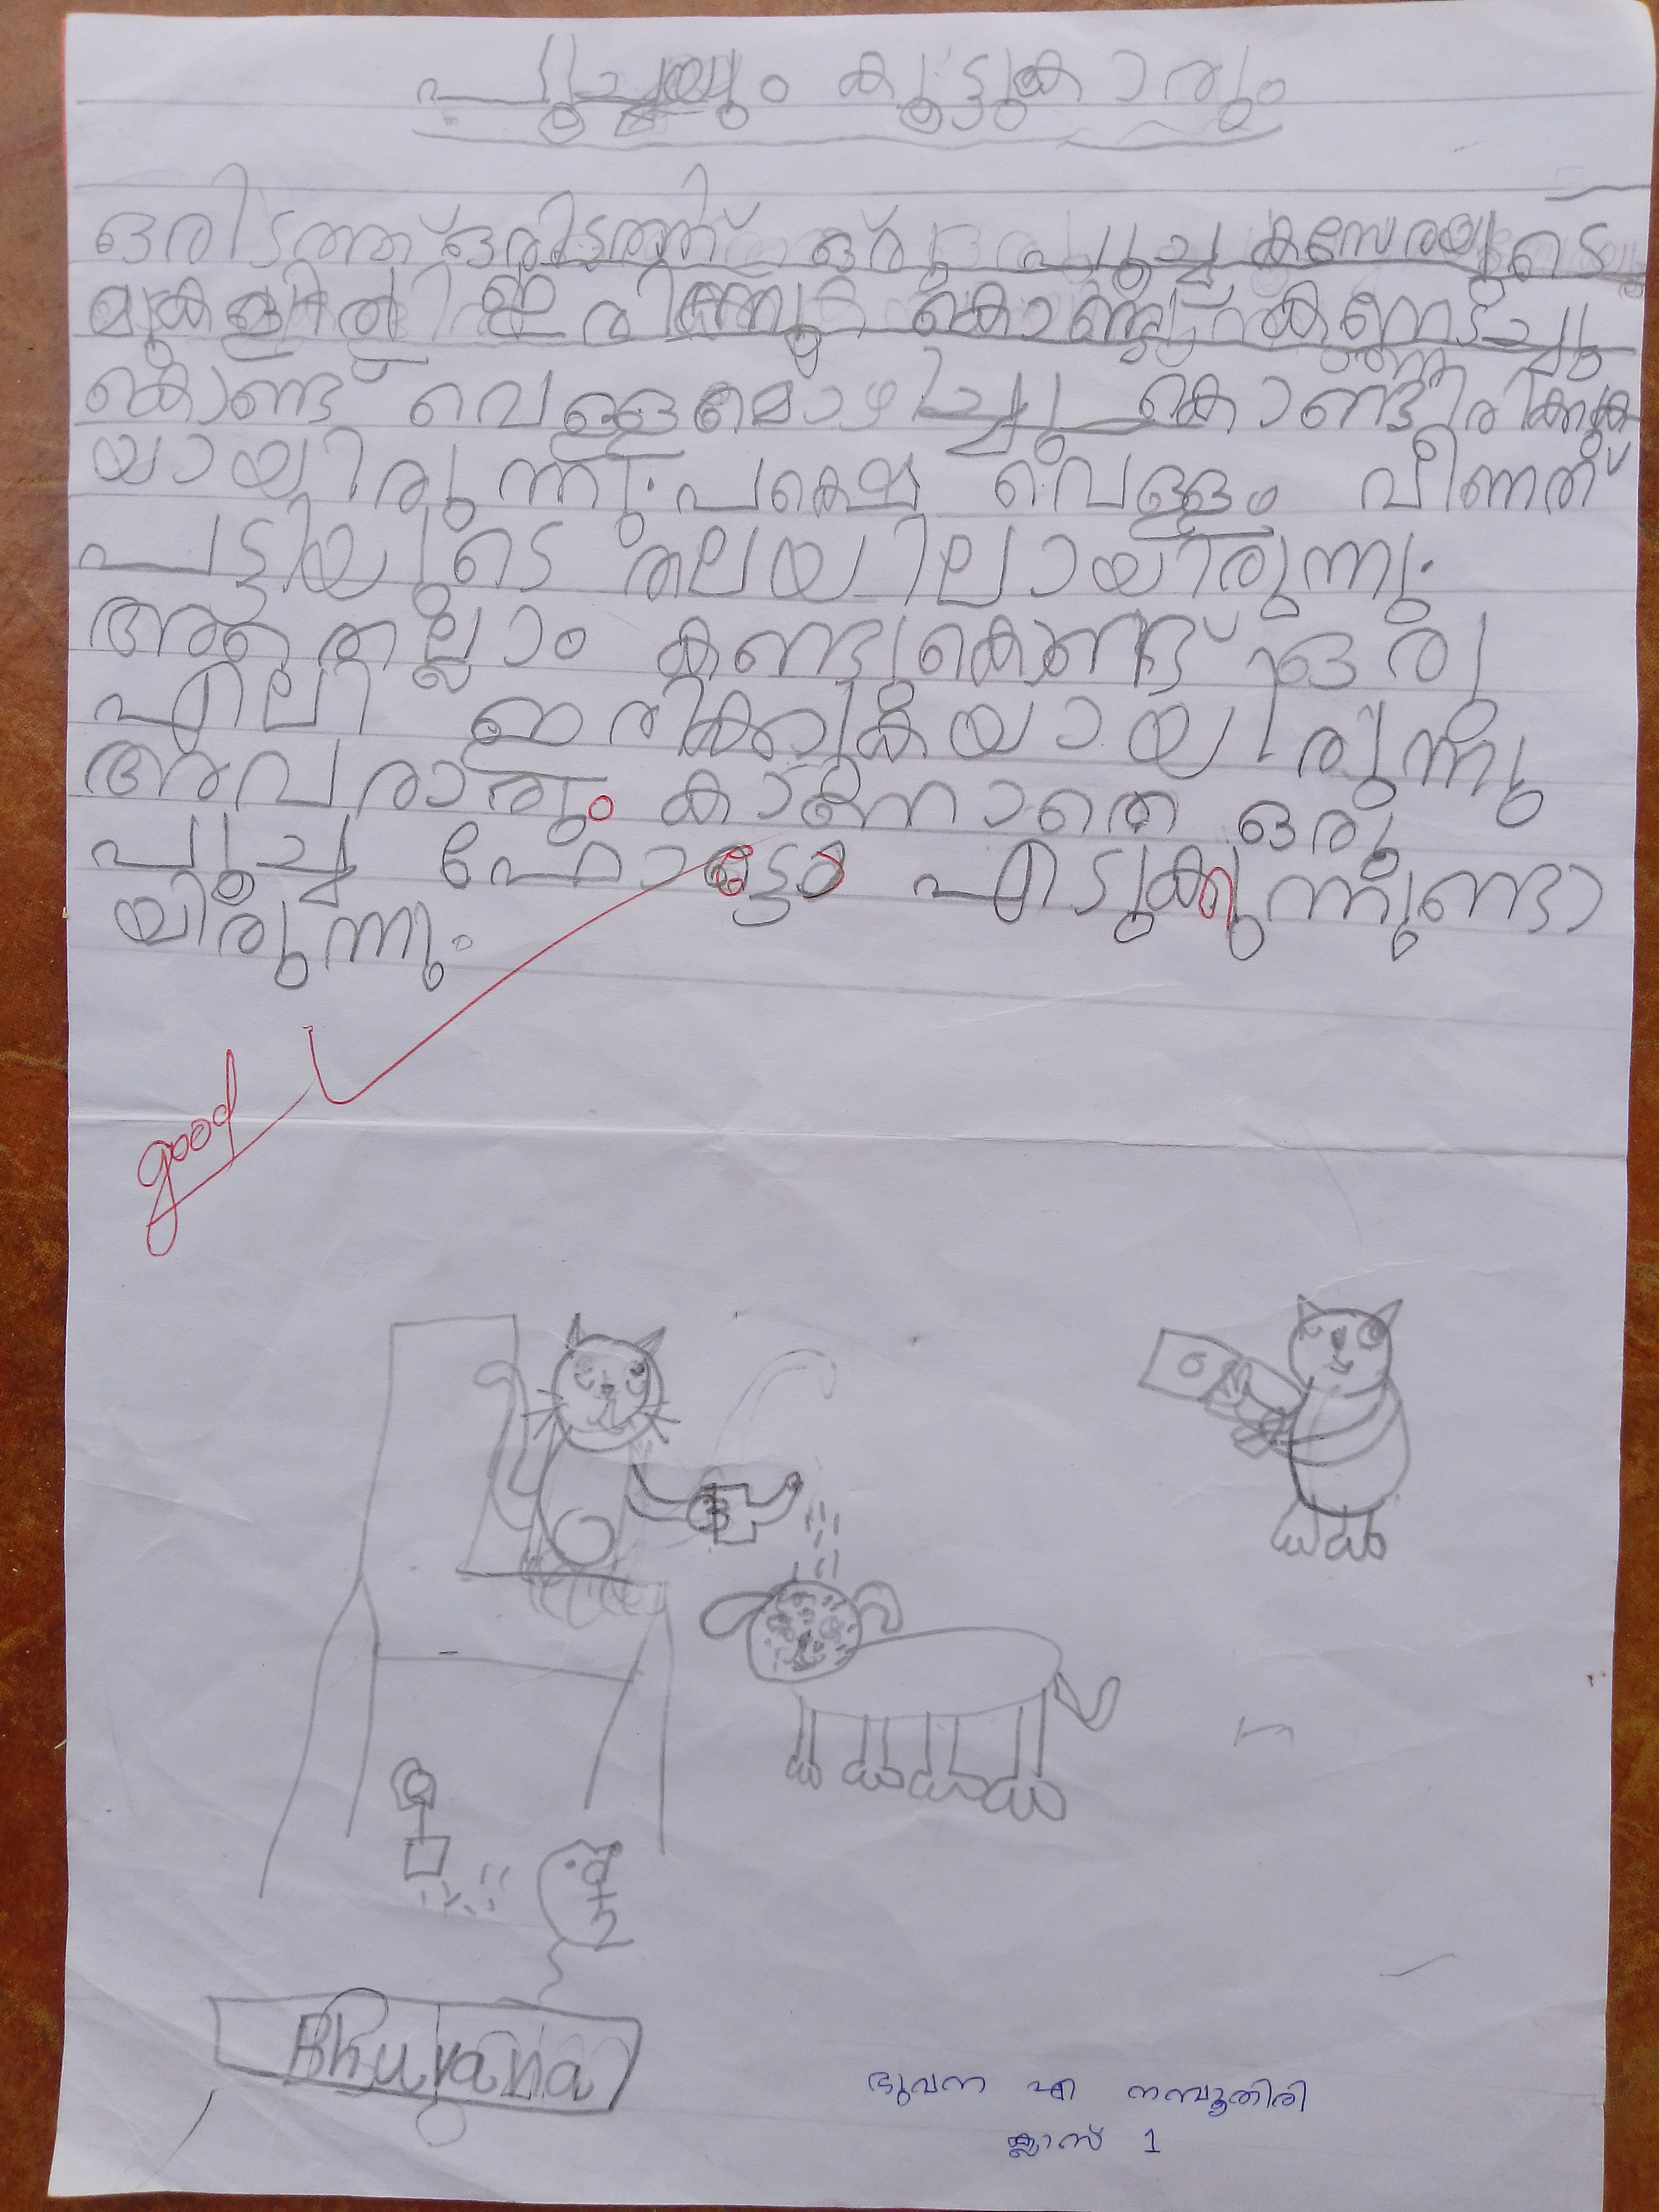 പൂച്ചയും കൂട്ടുകാരും
ഒരിടത്ത് ഒരിടത്ത് ഒരു പൂച്ച കസേരയുടെ
മുകളിൽ ഇരുന്നു കൊണ്ട് കണ്ണടച്ചു
കൊണ്ട് വെള്ളമൊഴിച്ചു കൊണ്ടിരിക്കുക
യായിരുന്നു. പക്ഷെ വെള്ളം വീണത്
പട്ടിയുടെ തലയിലായിരുന്നു.
അതെല്ലാം കണ്ടുകൊണ്ട് ഒരു
എലി ഇരിക്കുകയായിരുന്നു
അവരാരും കാണാതെ ഒരു
പൂച്ച ഫോട്ടോ എടുക്കുന്നുണ്ടാ
യിരുന്നു.
good
Bhuvana
ഭുവന എ നമ്പൂതിരി
ക്ലാസ് 1